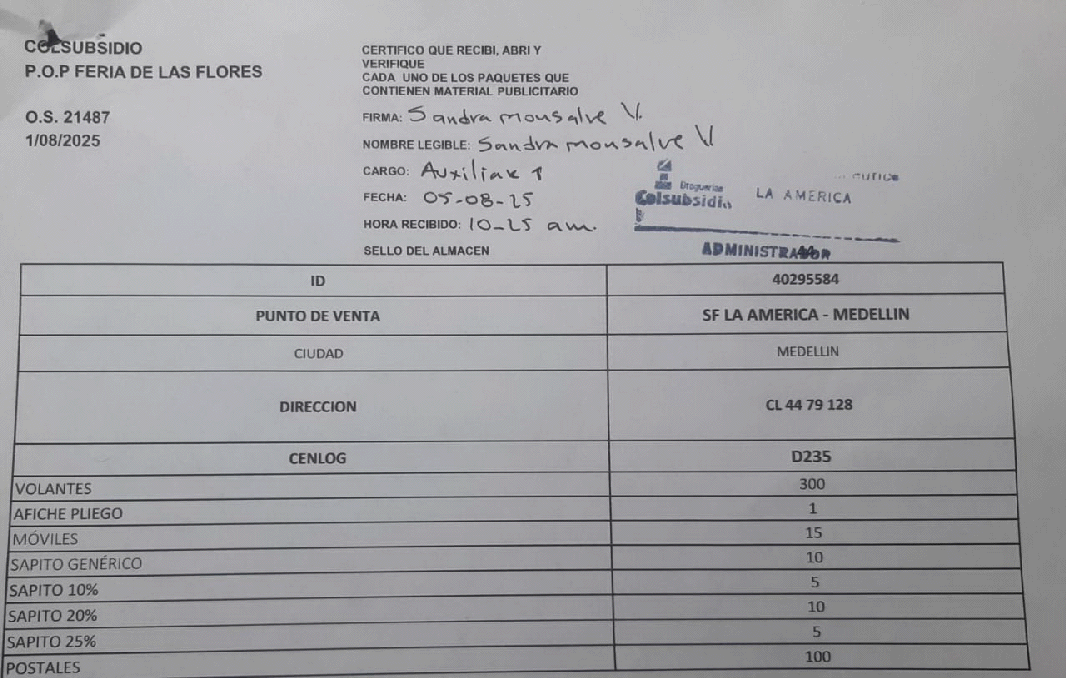 COLSUBSIDIO
P.O.P FERIA DE LAS FLORES
O.S. 21487
1/08/2025
CERTIFICO QUE RECIBI, ABRI Y
VERIFIQUE
CADA UNO DE LOS PAQUETES QUE
CONTIENEN MATERIAL PUBLICITARIO
FIRMA: Sandra monsalve V.
NOMBRE LEGIBLE: Sandra monsalve V
CARGO: Auxiliar 1
FECHA: 05-08-25
HORA RECIBIDO: 10-25 am.
SELLO DEL ALMACEN
Droguerías
Colsubsidio
LA AMERICA
ADMINISTRADOR
ID 40295584
PUNTO DE VENTA SF LA AMERICA - MEDELLIN
CIUDAD MEDELLIN
DIRECCION CL 44 79 128
CENLOG D235
VOLANTES 300
AFICHE PLIEGO 1
MÓVILES 15
SAPITO GENÉRICO 10
SAPITO 10% 5
SAPITO 20% 10
SAPITO 25% 5
POSTALES 100